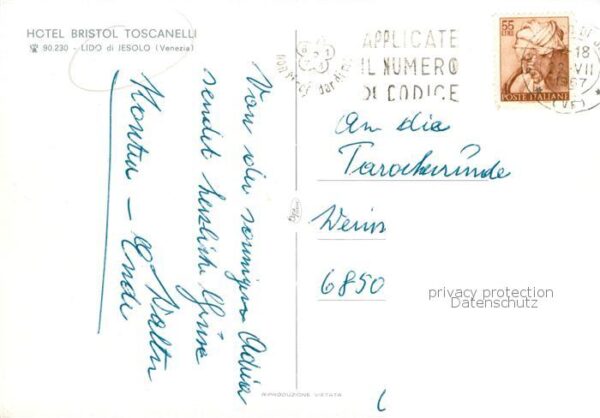 HOTEL BRISTOL TOSCANELLI
☎ 90.230 - LIDO di JESOLO (Venezia)
APPLICATE
IL NUMERO
DI CODICE
55
LIRE
POSTE ITALIANE
18
VII
1967
(VE)
An dia
Tarockrunde
6850
Von der sonnigen Adria
sendet herzliche Grüsse
Walter
privacy protection
Datenschutz
RIPRODUZIONE VIETATA